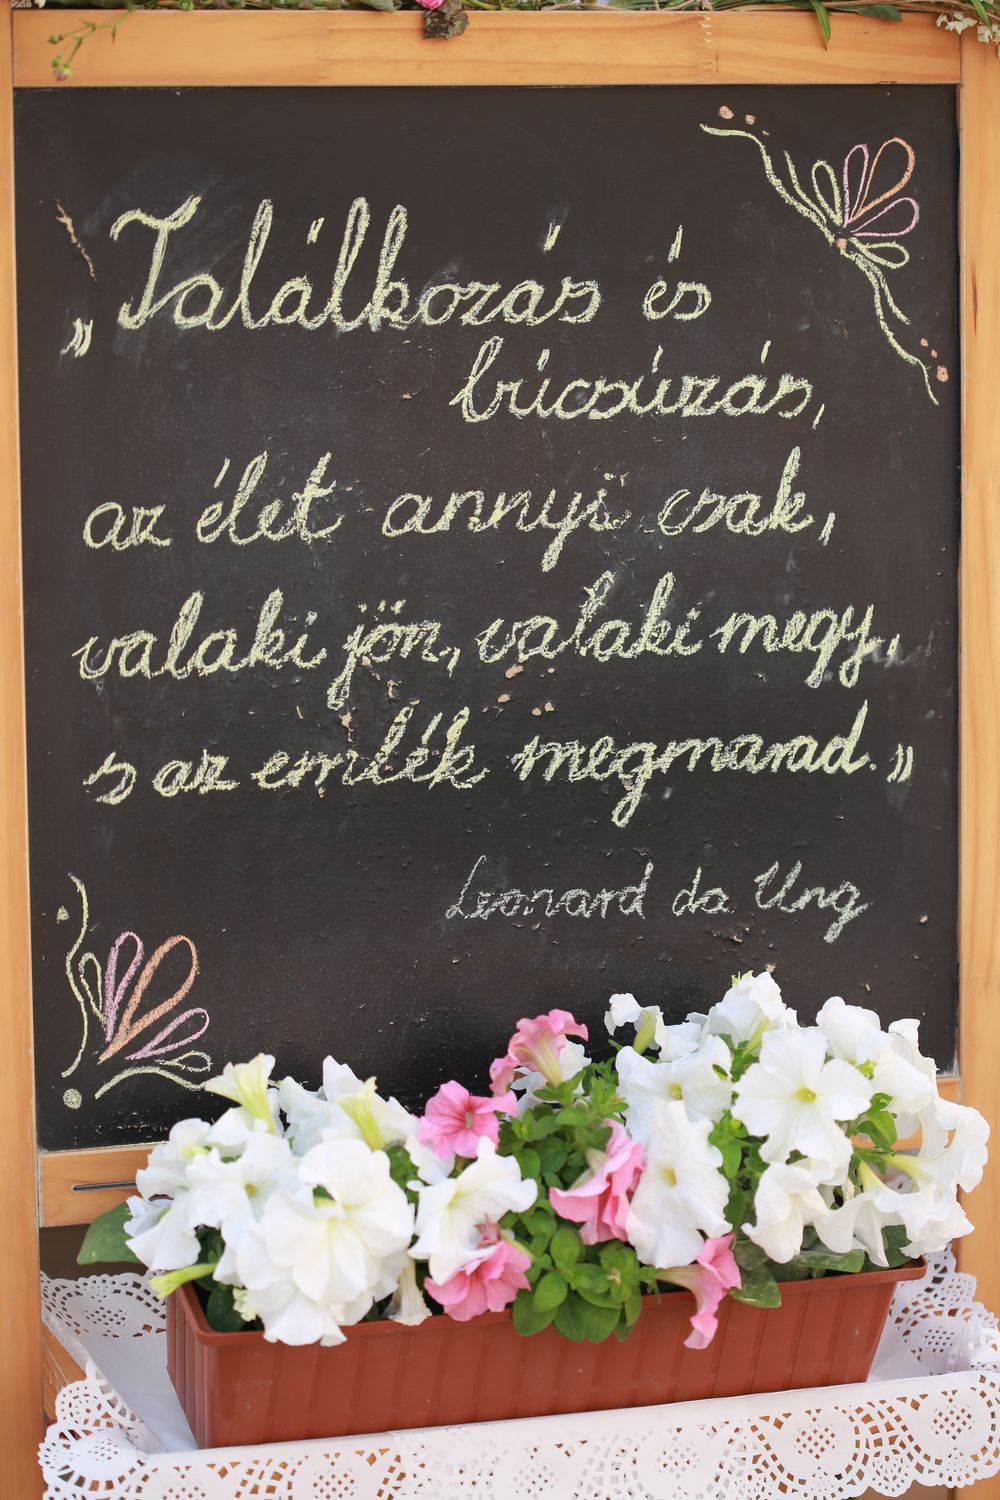 „Találkozás és
búcsúzás,
az élet annyi csak,
valaki jön, valaki megy,
s az emlék megmarad.”
Leonard da Ung